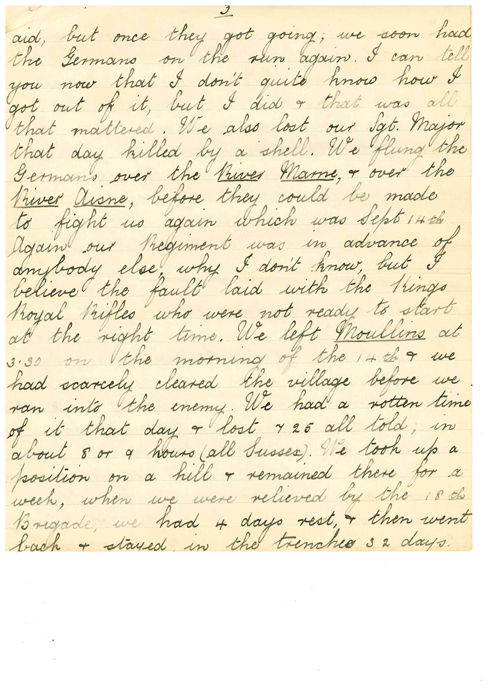 3
aid, but once they got going; we soon had
the Germans on the run again. I can tell
you now that I don't quite know how I
got out of it, but I did & that was all
that mattered. We also lost our Sgt. Major
that day killed by a shell. We flung the
Germans over the River Marne, & over the
River Aisne, before they could be made
to fight us again which was Sept 14th
Again our Regiment was in advance of
anybody else, why I don't know, but I
believe the fault laid with the Kings
Royal Rifles who were not ready to start
at the right time. We left Moullins at
3.30 on the morning of the 14th & we
had scarcely cleared the village before we
ran into the enemy. We had a rotten time
of it that day & lost 426 all told, in
about 8 or 9 hours (all Sussex). We took up a
position on a hill & remained there for a
week, when we were relieved by the 18th
Brigade, we had 4 days rest, & then went
back & stayed in the trenches 32 days.